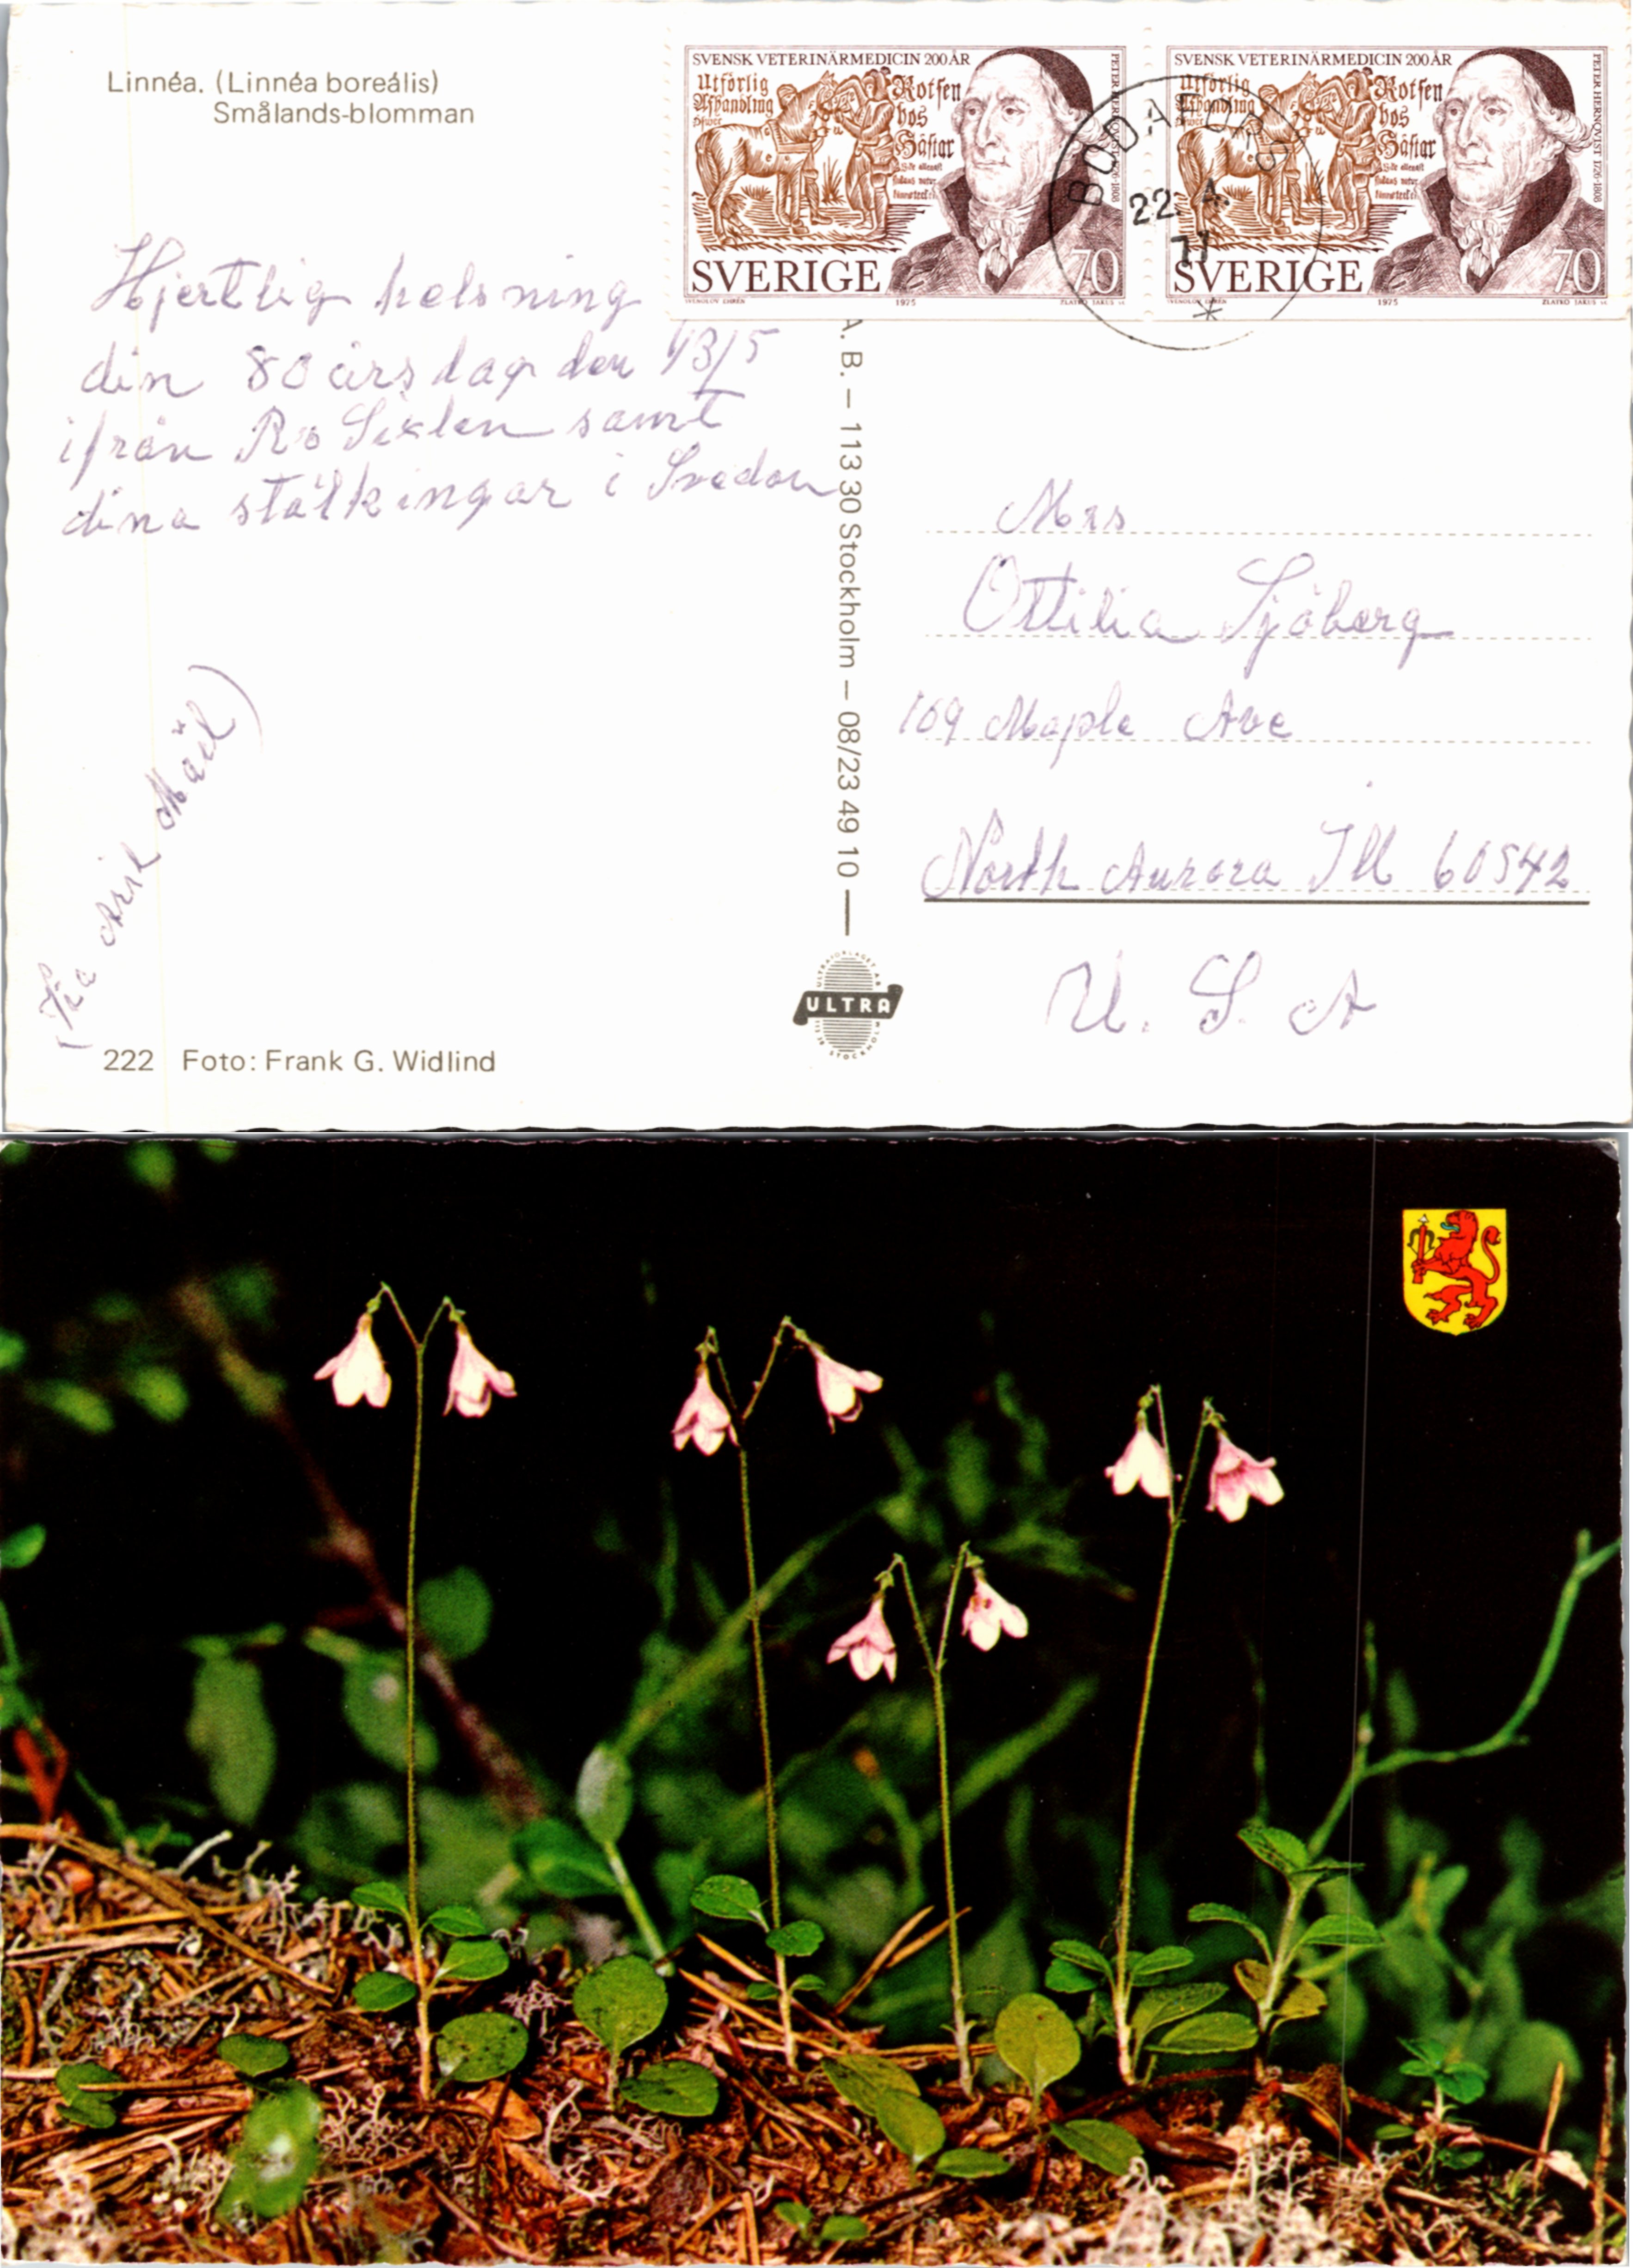 Linnéa. (Linnéa boreális)
Smålands-blomman
SVENSK VETERINÄRMEDICIN 200 ÅR
Utförlig
Afhandling
Rotsen
hos
Hästar
PETER HERNQVIST 1726-1808
SVERIGE
70
1975
ZLATKO JAKUS sc
SVENSK VETERINÄRMEDICIN 200 ÅR
Utförlig
Afhandling
Rotsen
hos
Hästar
PETER HERNQVIST 1726-1808
SVERIGE
70
1975
ZLATKO JAKUS sc
BODAFORS
22. 4.
77
Hjertlig helsning
din 80 årsdag den 13/5
ifrån
samt
dina i Sveden
A. B. – 113 30 Stockholm – 08/23 49 10
Mrs
Ottilia Sjöberg
169 Maple Ave
North Aurora Ill 60542
U. S. A
ULTRA
222 Foto: Frank G. Widlind